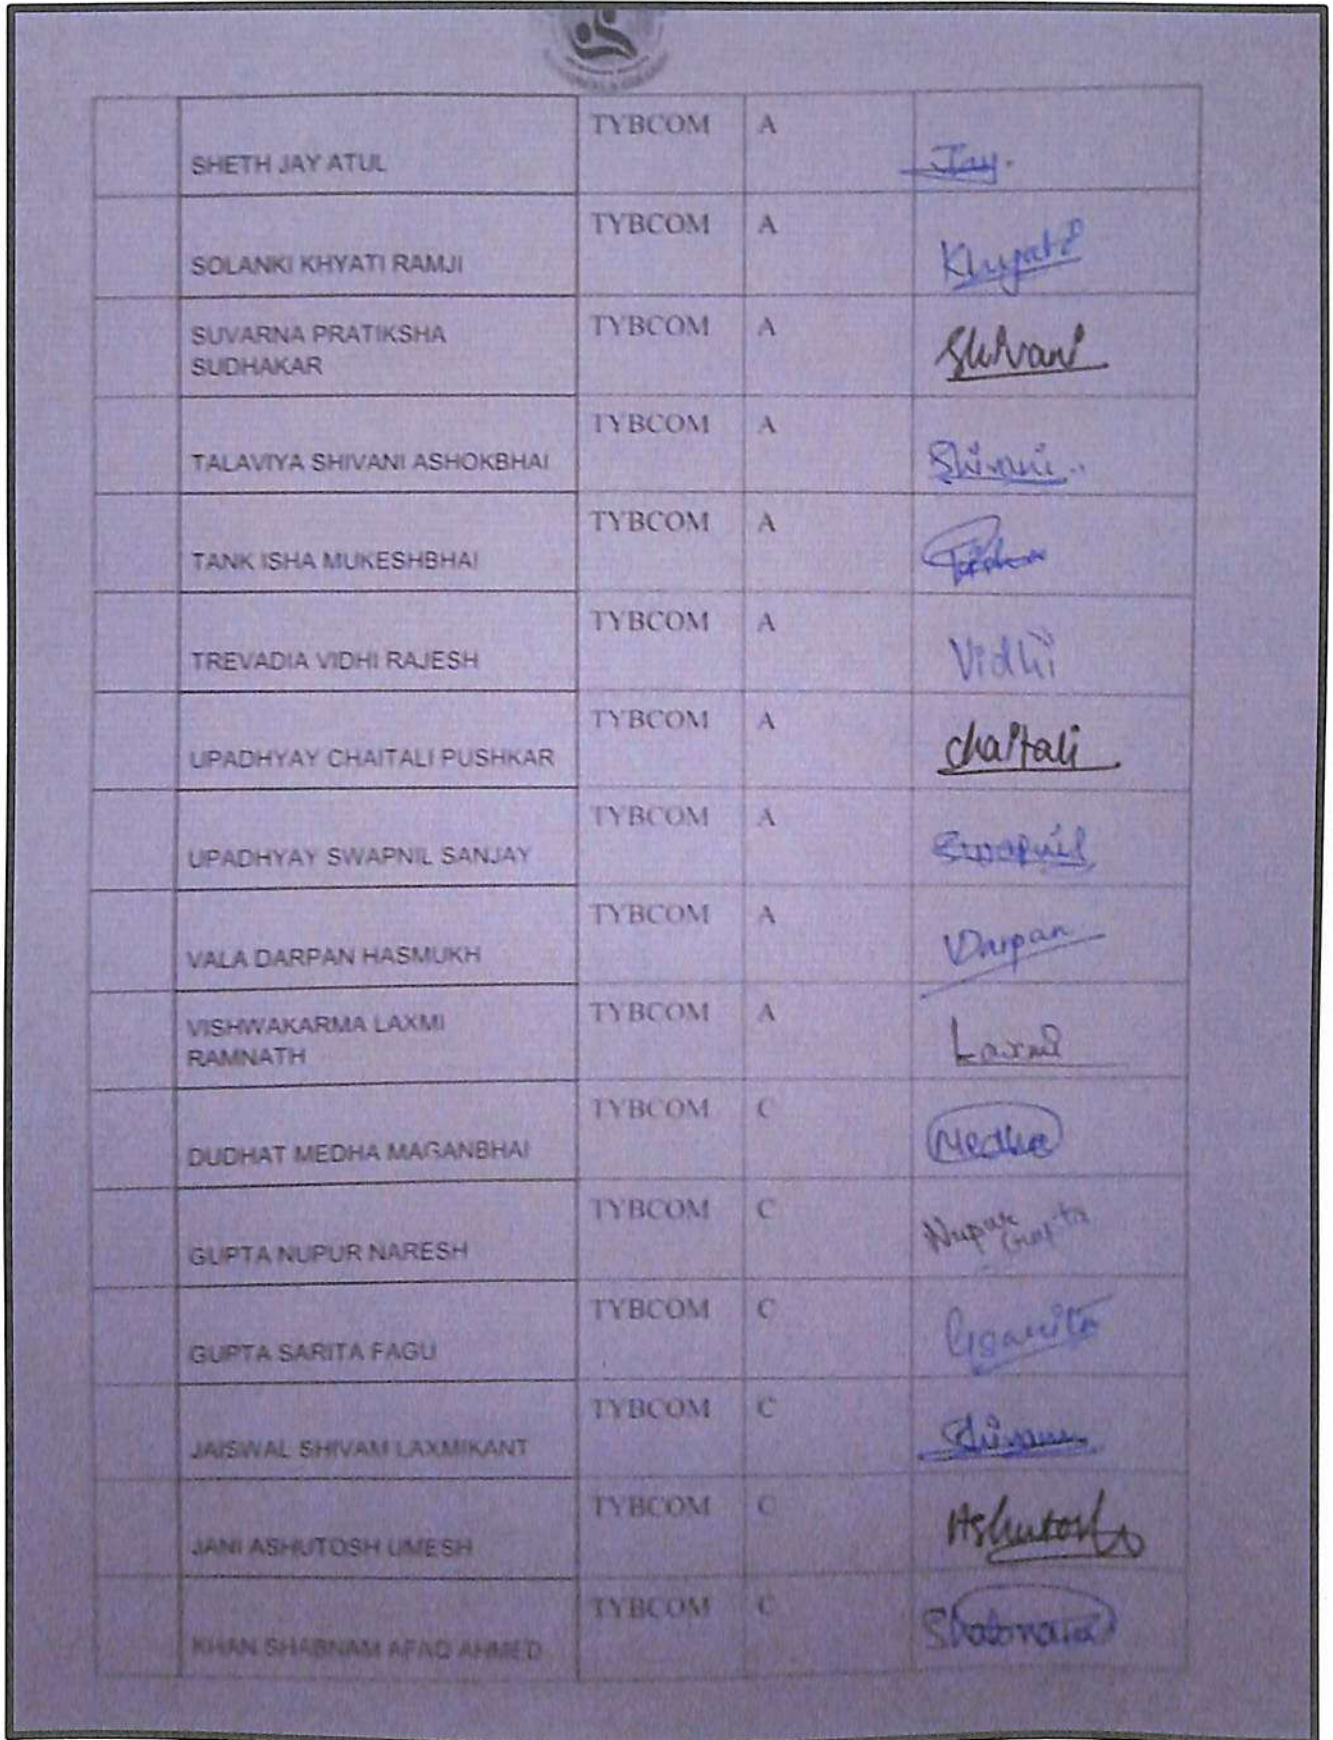 SHETH JAY ATUL TYBCOM A Jay.
SOLANKI KHYATI RAMJI TYBCOM A Khyati
SUVARNA PRATIKSHA
SUDHAKAR TYBCOM A Shivani
TALAVIYA SHIVANI ASHOKBHAI TYBCOM A Shivani..
TANK ISHA MUKESHBHAI TYBCOM A
TREVADIA VIDHI RAJESH TYBCOM A Vidhi
UPADHYAY CHAITALI PUSHKAR TYBCOM A chaitali
UPADHYAY SWAPNIL SANJAY TYBCOM A Swapnil
VALA DARPAN HASMUKH TYBCOM A Darpan
VISHWAKARMA LAXMI
RAMNATH TYBCOM A Laxmi
DUDHAT MEDHA MAGANBHAI TYBCOM C Medha
GUPTA NUPUR NARESH TYBCOM C Nupur
Gupta
GUPTA SARITA FAGU TYBCOM C
JAISWAL SHIVAM LAXMIKANT TYBCOM C Shivam
JANI ASHUTOSH UMESH TYBCOM C Ashutosh
KHAN SHABNAM AFAQ AHMED TYBCOM C Shabnam